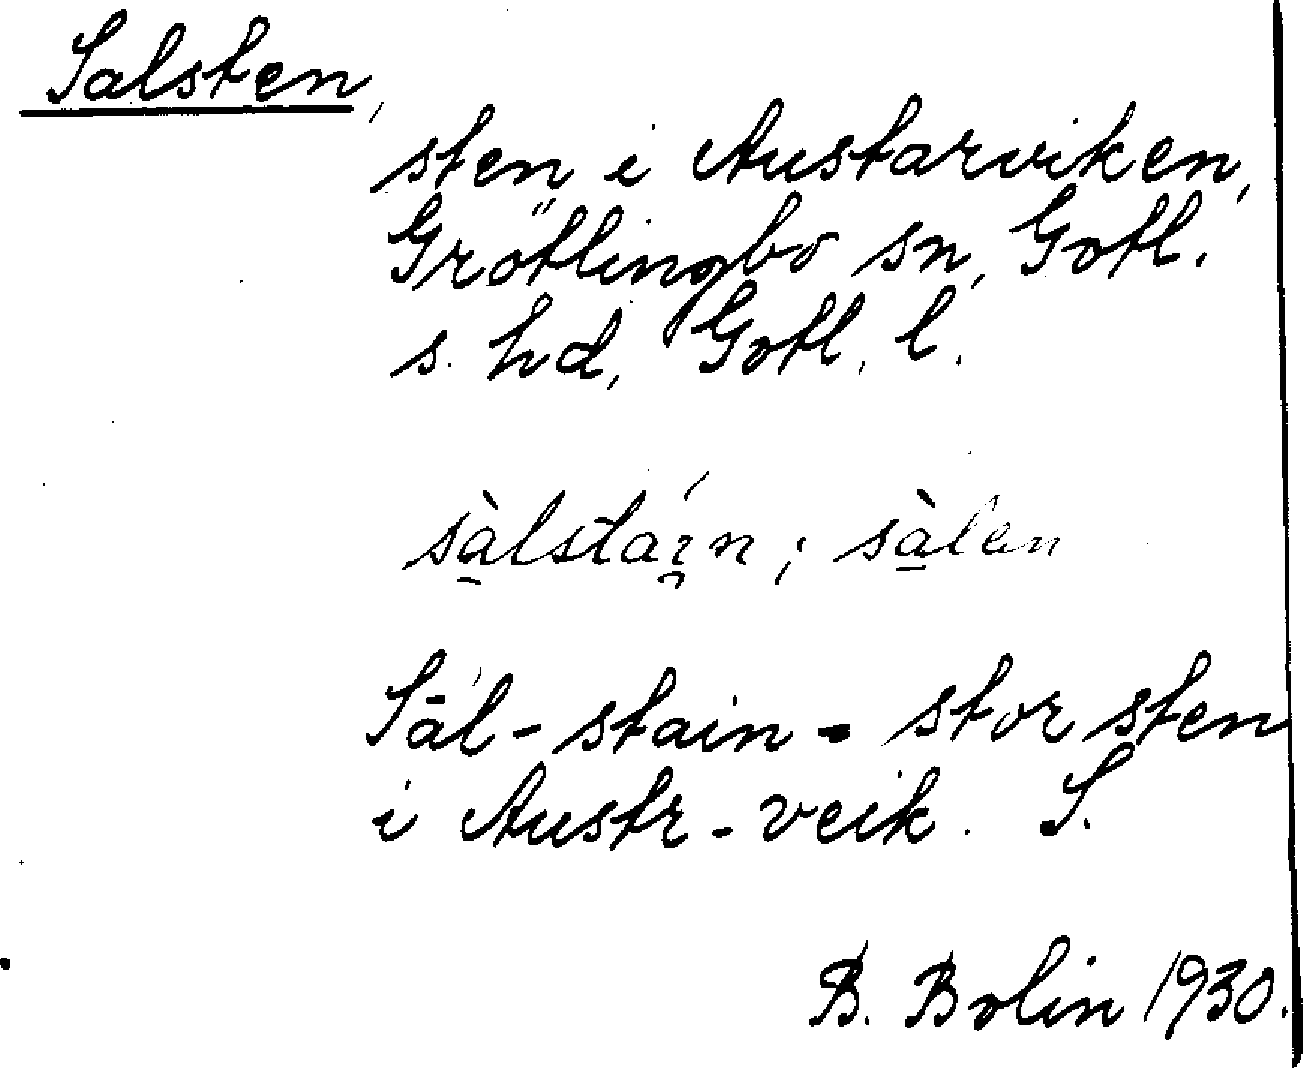 Salsten,
sten i Austarviken,
Grötlingbo sn, Gotl.
s. hd, Gotl. l.
sà̱lstaı̯́n; sà̱len
Sāl-stain = stor sten
i Austr-veik. S.
B. Bolin 1930.